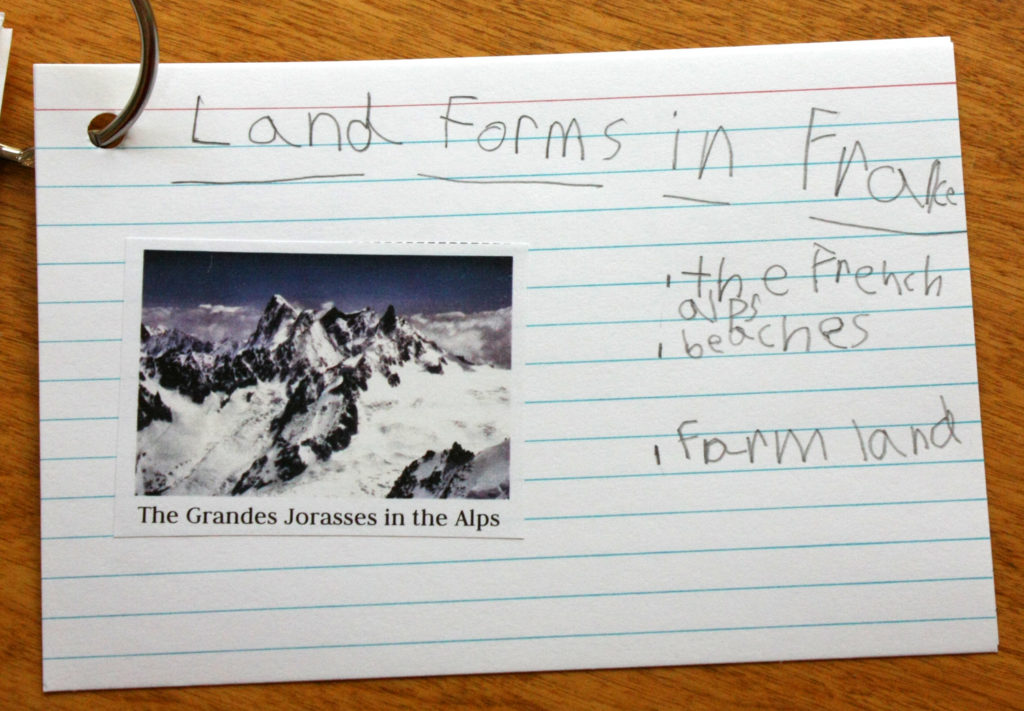 Land Forms in France
The Grandes Jorasses in the Alps
the French
alps
beaches
Farm land